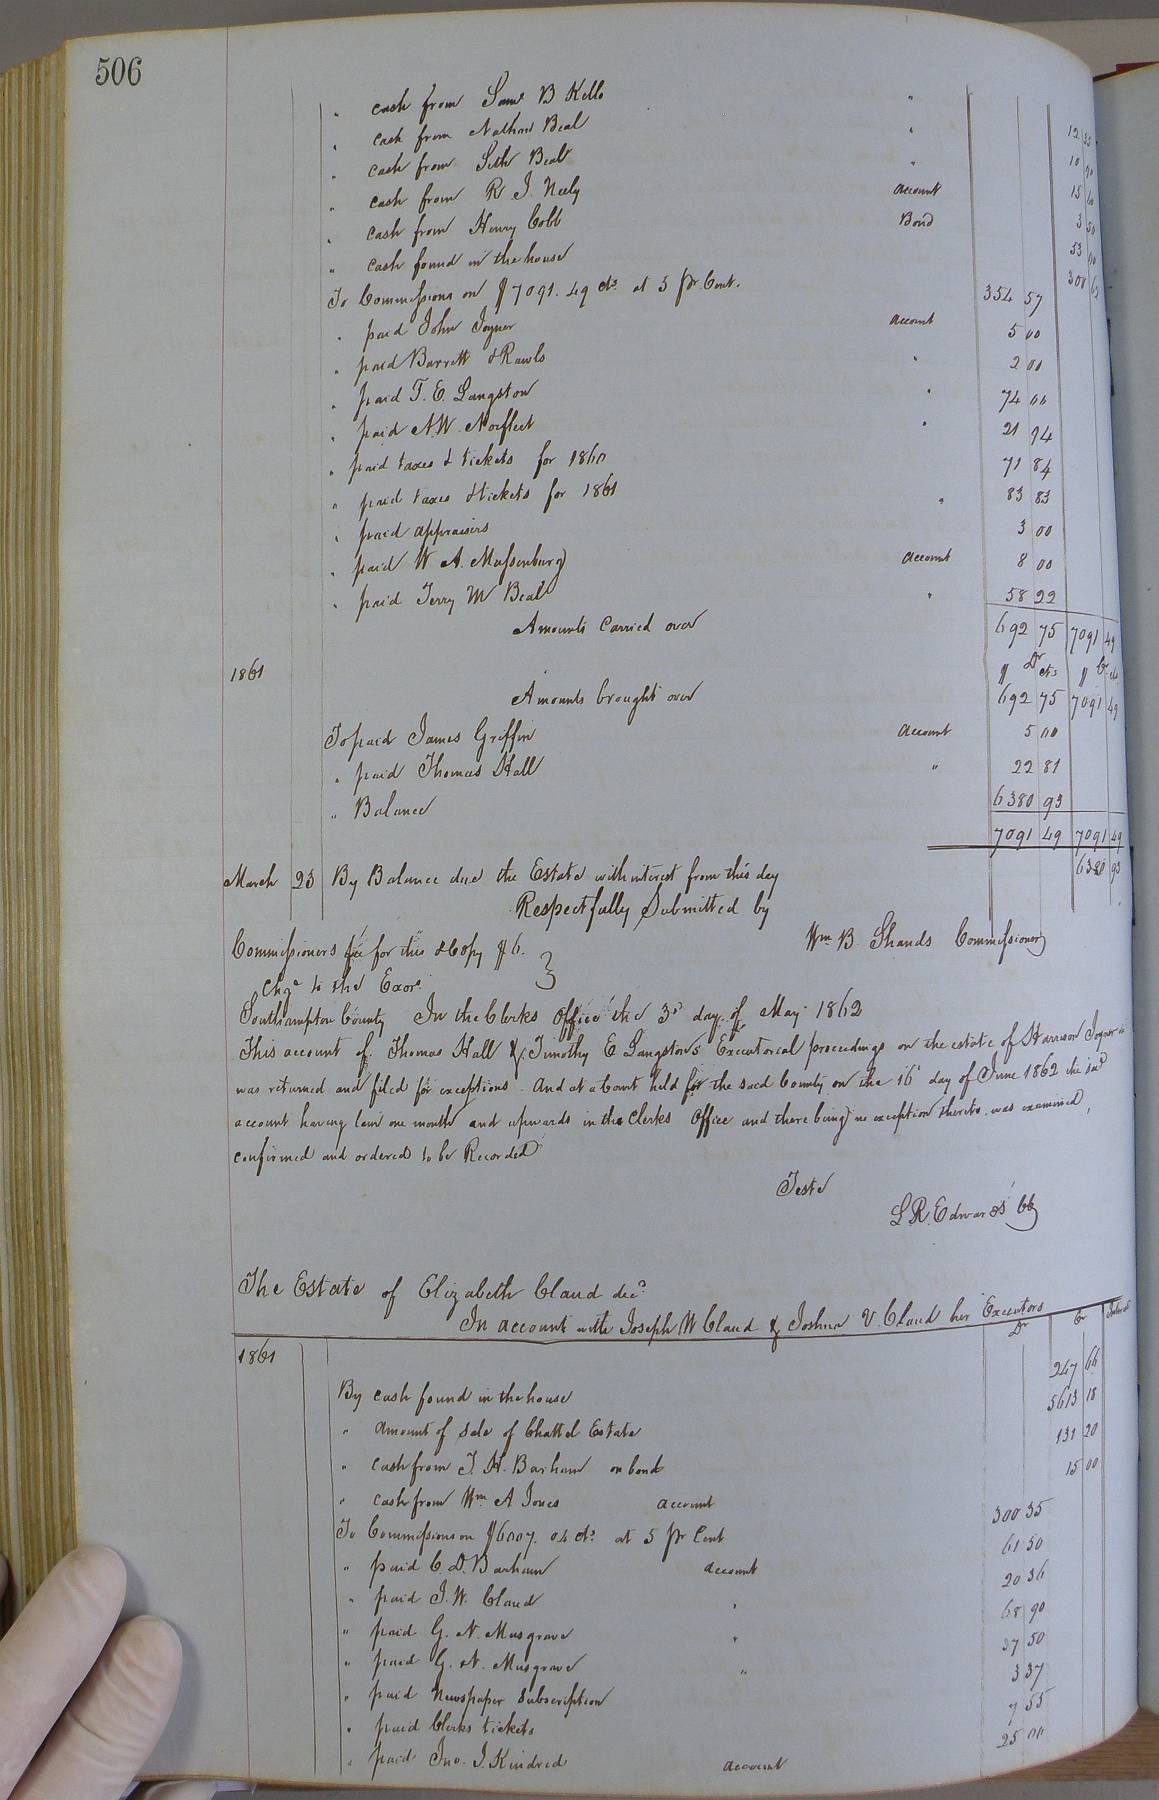 506
" cash from Saml B Kello "
" cash from Nathan Beal " 12 35
" cash from Seth Beal " 10 00
" cash from R J. Neely account 15 60
" cash from Henry Cobb Bond 3 50
" cash found in the house 53 00
To Commissions on $7091.49 cts at 5 pr Cent. 354 57 300 62
" paid John Joyner account 5 00
" paid Barrett & Rawls " 2 00
" paid T. E. Langston " 74 00
" paid N.W. Norfleet " 21 94
" paid taxes & tickets for 1860 71 84
" paid taxes & tickets for 1861 " 83 83
" paid appraisers 3 00
" paid W A. Massenburg account 8 00
" paid Jerry M Beal " 58 22
Amounts Carried over 692 75 7091 49
1861 $ Dr cts $ Cr cts
Amounts brought over 692 75 7091 49
To paid James Griffin account 5 00
" paid Thomas Hall " 22 81
" Balance 6380 93
7091 49 7091 49
March 23 By Balance due the Estate with interest from this day 6380 93
Respectfully Submitted by
Wm B. Shands Commissioner
Commissioners fee for this & Copy $6.
Chgd to the Exors
Southampton County In the Clerks Office the 3d day of May 1862
This account of Thomas Hall & Timothy E Langstons Executorial proceedings on the estate of Harrison Joyner
was returned and filed for exceptions. And at a Court held for the said County on the 16th day of June 1862 the said
account having lain one month and upwards in the Clerks Office and there being no exception thereto was examined,
confirmed and ordered to be Recorded
Teste
L R. Edwards CC
The Estate of Elizabeth Claud decd
In account with Joseph W Claud & Joshua V. Claud her Executors Dr Cr Interest
1861
By cash found in the house 247 66
" amount of sale of Chattel Estate 5613 18
" cash from T. H. Barham on bond 131 20
" cash from Wm A Jones account 15 00
To Commissions on $6007.04 cts at 5 pr Cent 300 35
" paid C. D. Barham account 61 50
" paid J. W. Claud " 20 36
" paid G. N. Musgrave " 68 90
" paid G. N. Musgrave " 37 50
" paid Newspaper subscription 3 37
" paid Clerks tickets 7 55
" paid Jno. J. Kindred account 25 00